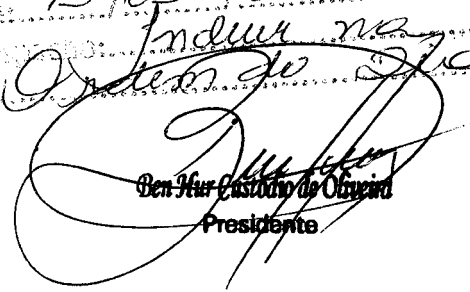 Incluir na
Ordem do
Ben Hur Custódio de Oliveira
Presidente